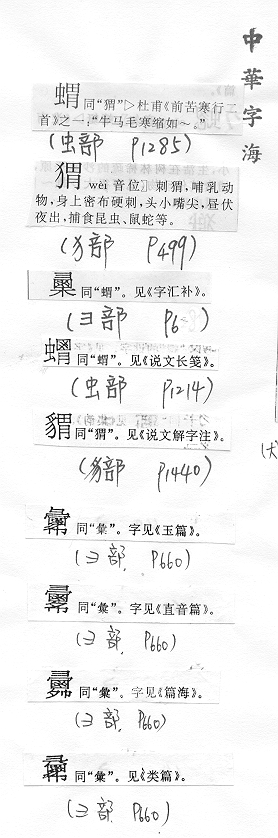 中華字海
蝟 同“猬”▷杜甫《前苦寒行二
首》之一:“牛马毛寒缩如～。”
(虫部 P1285)
猬 wèi 音位〗刺猬,哺乳动
物,身上密布硬刺,头小嘴尖,昼伏
夜出,捕食昆虫、鼠蛇等。
(犭部 P499)
同“蝟”。见《字汇补》。
(彐部 P6
同“蝟”。见《说文长笺》。
(虫部 P1214)
同“猬”。见《说文解字注》。
P1440)
同“彙”。字见《玉篇》。
(彐部, P660)
同“彙”。字见《直音篇》。
(彐部, P660)
同“彙”。字见《篇海》。
(彐部, P660)
同“彙”。见《类篇》。
(彐部 P660)